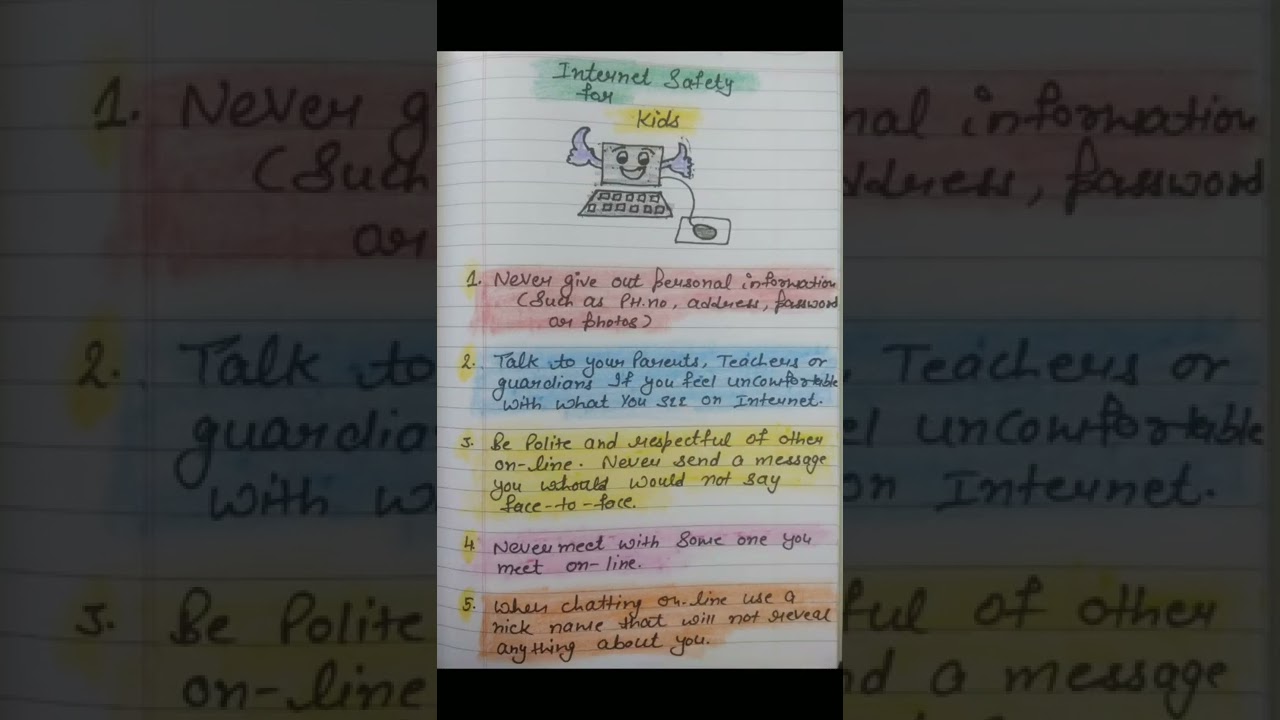 Internet Safety
for
Kids
1. Never give out personal information
(Such as PH.no, address, password
or photos)
2. Talk to your Parents, Teachers or
guardians If you feel uncomfortable
with what You see on Internet.
3. Be Polite and respectful of other
on-line. Never send a message
you whould would not say
face-to-face.
4 Never meet with Some one you
meet on-line.
5. When chatting on-line use a
nick name that will not reveal
anything about you.